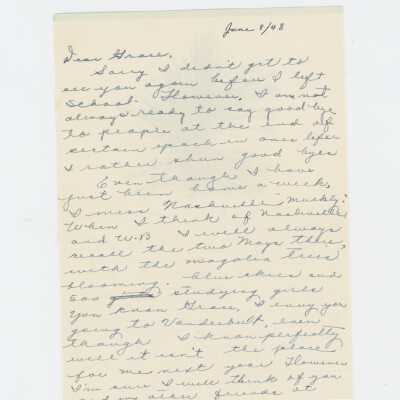 June 8/48
Dear Grace,
Sorry I didn't get to
see you again before I left
School. However, I am not
always ready to say good-bye
to people at the end of
certain epoch in ones life
I rather shun good byes
Even though I have
just been home a week,
I miss Nashville muchly.
When I think of Nashville
and W.B I will always
recall the two Mays there,
with the magnolia trees
blooming. blue skies and
studying girls
You know Grace, I envy you
going to Vanderbilt, even
though I know perfectly
well it isn't the place
for me next year. However
I'm sure I will think of you
and my other friends at